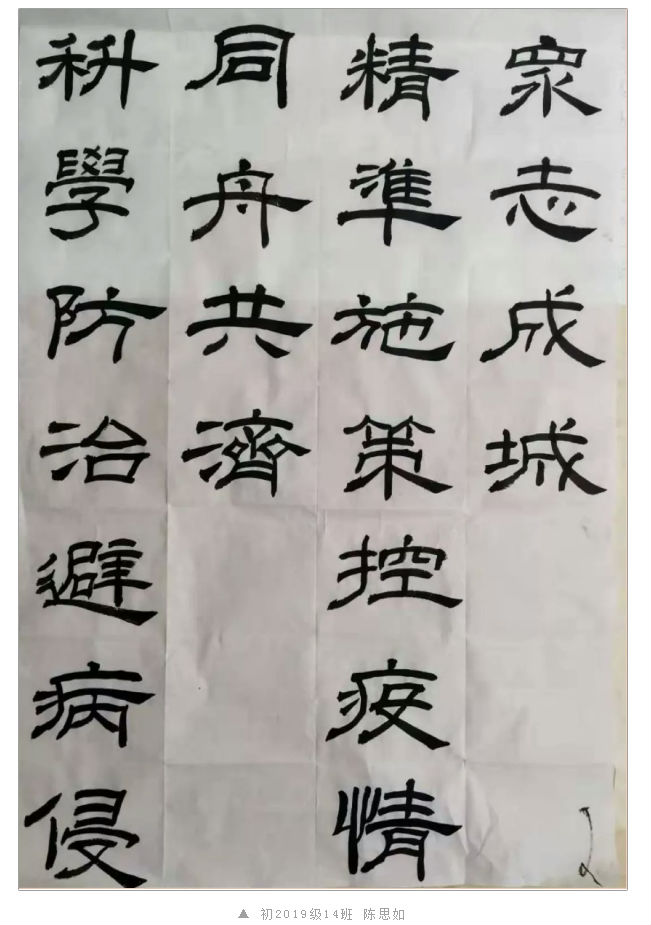 眾志成城
精準施策控疫情
同舟共濟
科學防治避病侵
▲ 初2019级14班 陈思如